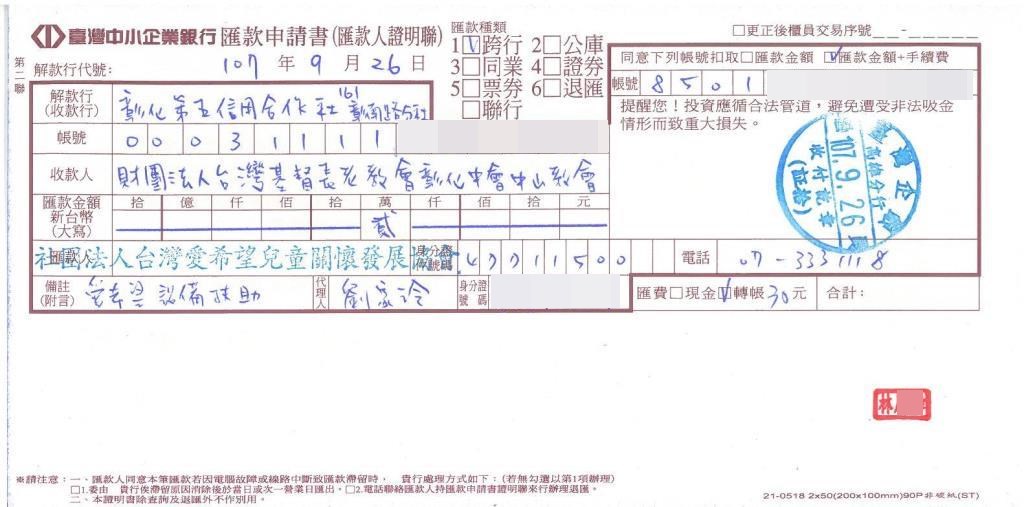 臺灣中小企業銀行 匯款申請書(匯款人證明聯)
匯款種類
1☑跨行 2□公庫
3□同業 4□證券
5□票券 6□退匯
□聯行
□更正後櫃員交易序號
第二聯
解款行代號: 107年9月26日
同意下列帳號扣取□匯款金額 ☑匯款金額+手續費
帳號 8501
提醒您!投資應循合法管道,避免遭受非法吸金
情形而致重大損失。
解款行(收款行) 彰化第五信用合作社 161 彰南路分社
帳號 00031111
收款人 財團法人台灣基督長老教會彰化中會中山教會
匯款金額 新台幣(大寫) 拾 億 仟 佰 拾 萬 仟 佰 拾 元
貳
匯款人 社團法人台灣愛希望兒童關懷發展 40011500 電話 07-3331118
備註(附言) 設備扶助 代理人 劉 身分證號碼 匯費□現金☑轉帳30元 合計:
企
高雄分行
107.9.26
收付訖章
林
※請注意:一、匯款人同意本筆匯款若因電腦故障或線路中斷致匯款滯留時, 貴行處理方式如下:(若無勾選以第1項辦理)
□1.委由 貴行俟滯留原因消除後於當日或次一營業日匯出。□2.電話聯絡匯款人持匯款申請書證明聯來行辦理退匯。
二、本證明書除查詢及退匯外不作別用。
21-0518 2x50(200x100mm)90P非碳紙(ST)